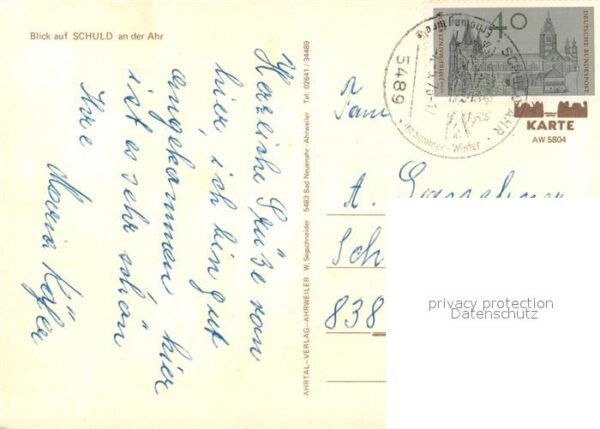 Blick auf SCHULD an der Ahr
Herzliche Grüße von
hier, ich bin gut
angekommen hier
ist es sehr schön
Ihre Maria Käfer
AHRTAL-VERLAG-AHRWEILER W. Segschneider 5483 Bad Neuenahr - Ahrweiler Tel. 02641 / 34489
5489 SCHULD AHR
Im Sommer - Winter
40
DEUTSCHE BUNDESPOST
KARTE
AW 5804
Fam.
A.
Sch
838
privacy protection
Datenschutz